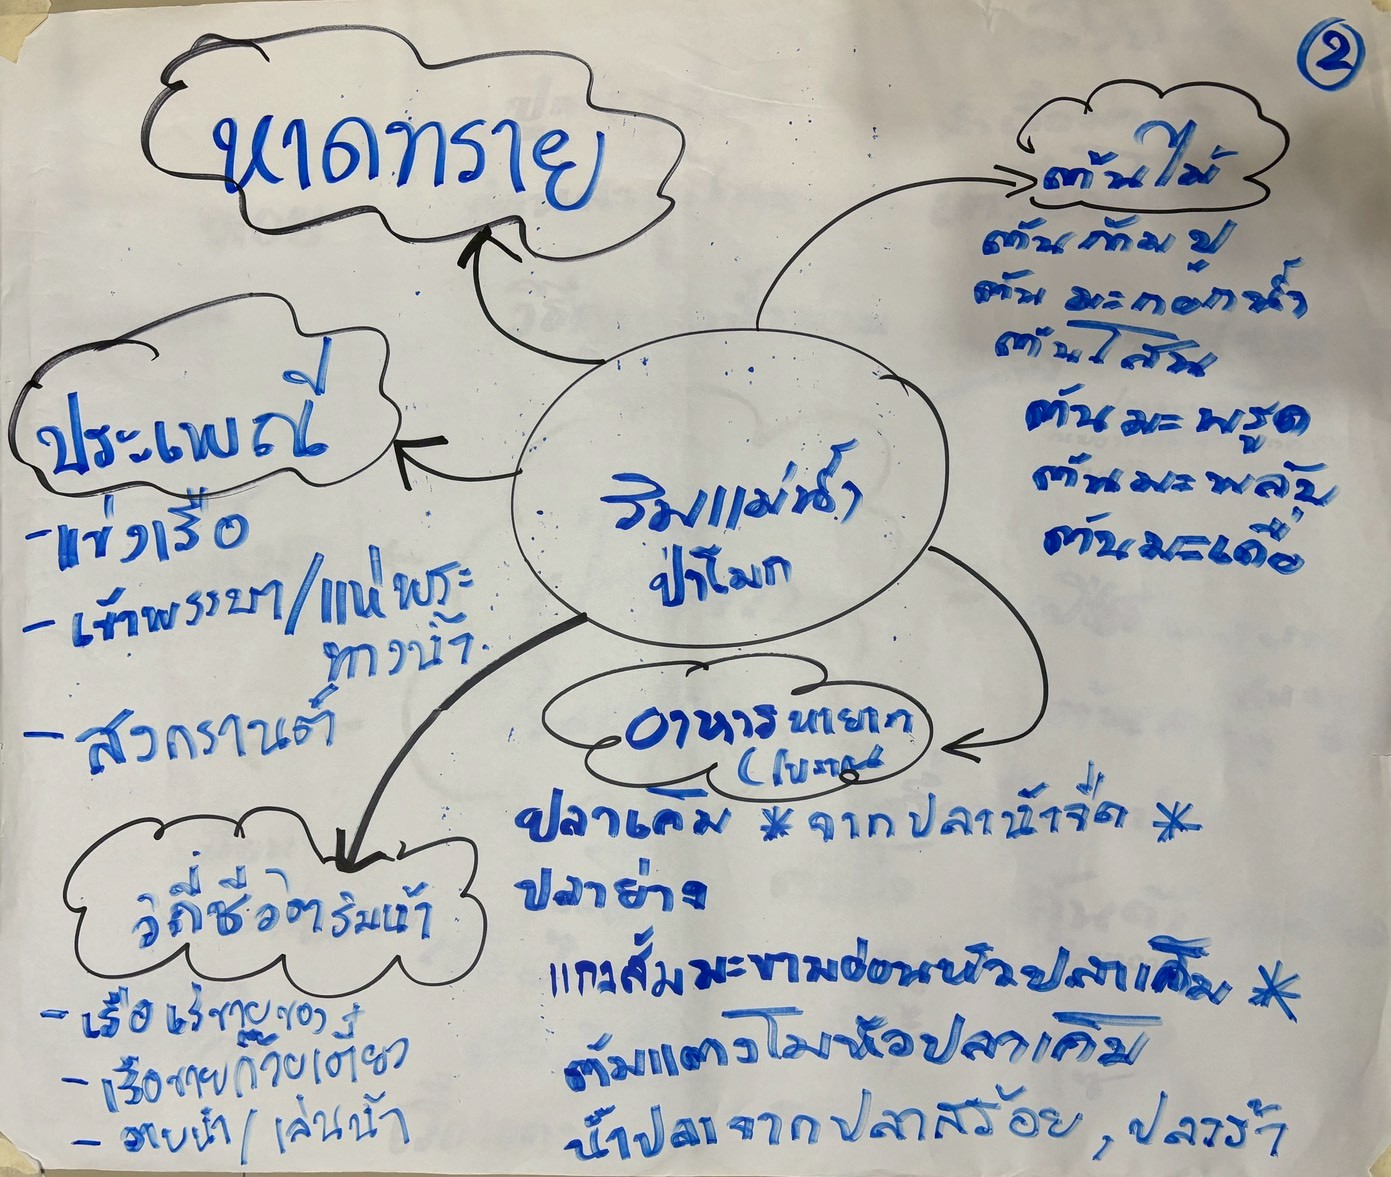 2
หาดทราย
ต้นไม้
ต้นก้ามปู
ต้นมะกอกน้ำ
ต้นโสน
ต้นมะพรูด
ต้นมะพลับ
ต้นมะเดื่อ
ประเพณี
- แข่งเรือ
- เข้าพรรษา/แห่พระ
ทางน้ำ
- สงกรานต์
ริมแม่น้ำ
ป่าโมก
อาหารหายาก
(โบราณ
ปลาเค็ม * จากปลาน้ำจืด *
ปลาย่าง
แกงส้มมะขามอ่อนหัวปลาเค็ม *
ต้มแตงโมหัวปลาเค็ม
น้ำปลาจากปลาสร้อย, ปลาร้า
วิถีชีวิตริมน้ำ
- เรือเร่ขายของ
- เรือขายก๋วยเตี๋ยว
- อาบน้ำ/เล่นน้ำ